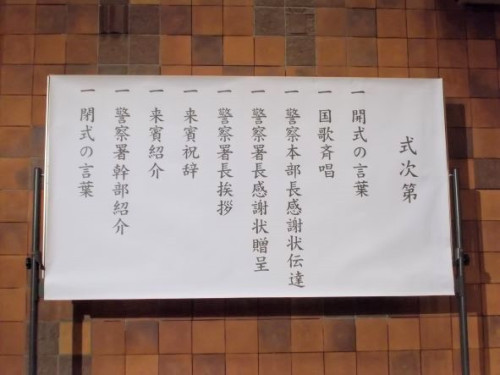 式次第
一 開式の言葉
一 国歌斉唱
一 警察本部長感謝状伝達
一 警察署長感謝状贈呈
一 警察署長挨拶
一 来賓祝辞
一 来賓紹介
一 警察署幹部紹介
一 閉式の言葉